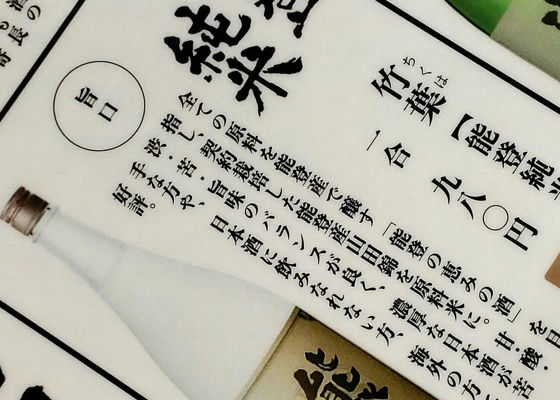 【能登純
竹葉
ちくは
一合 九八〇円
登純米
旨口
全ての原料を能登産で醸す「能登の恵みの酒」を目
指し、契約栽培した能登産山田錦を原料米に。甘・酸・
渋・苦・旨味のバランスが良く、濃厚な日本酒が苦
手な方や、日本酒に飲みなれない方、海外の方
好評。
能